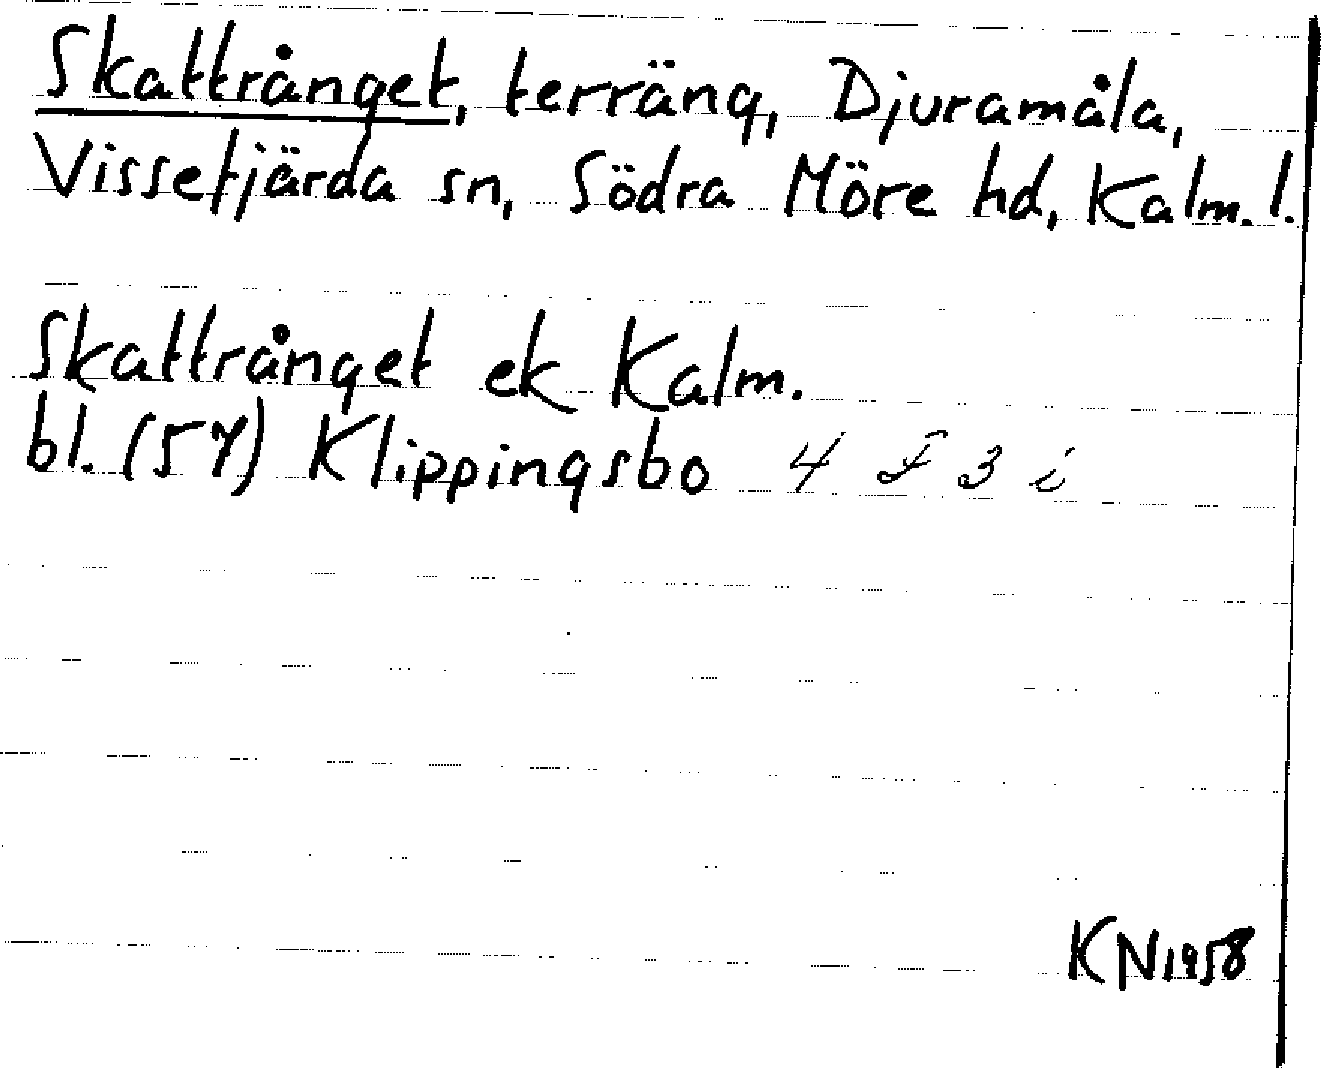 Skattrånget, terräng, Djuramåla,
Vissefjärda sn, Södra Möre hd, Kalm. l.
Skattrånget ek Kalm.
bl. (57) Klippingsbo 4 F 3 i
KN 1958